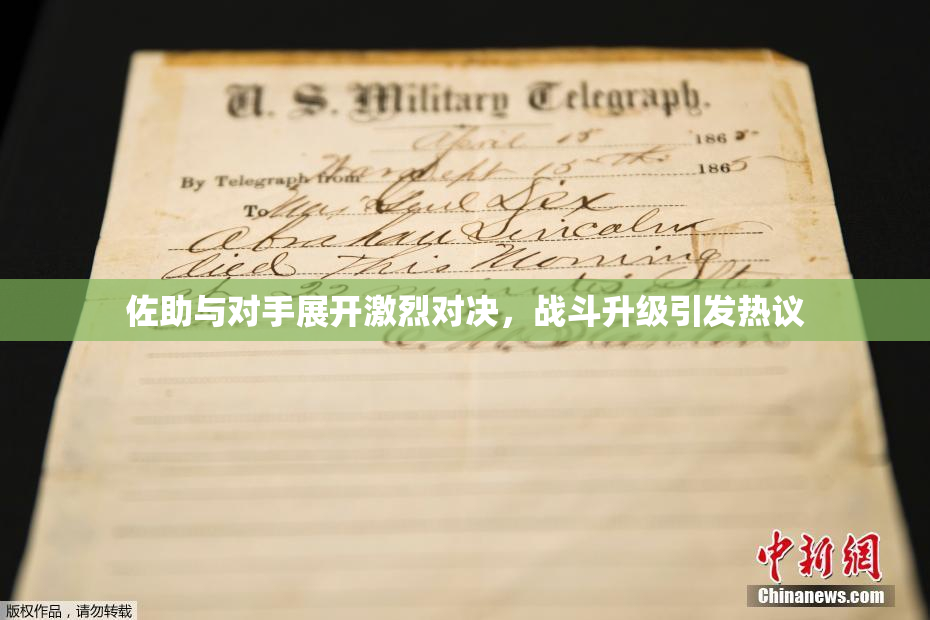 U. S. Military Telegraph.
April 15 1865
By Telegraph from War Dept 15th 1865
To Maj Genl Dix
Abraham Lincoln
died This Morning
at 22 minutes after
佐助与对手展开激烈对决，战斗升级引发热议
中新网
Chinanews.com
版权作品，请勿转载